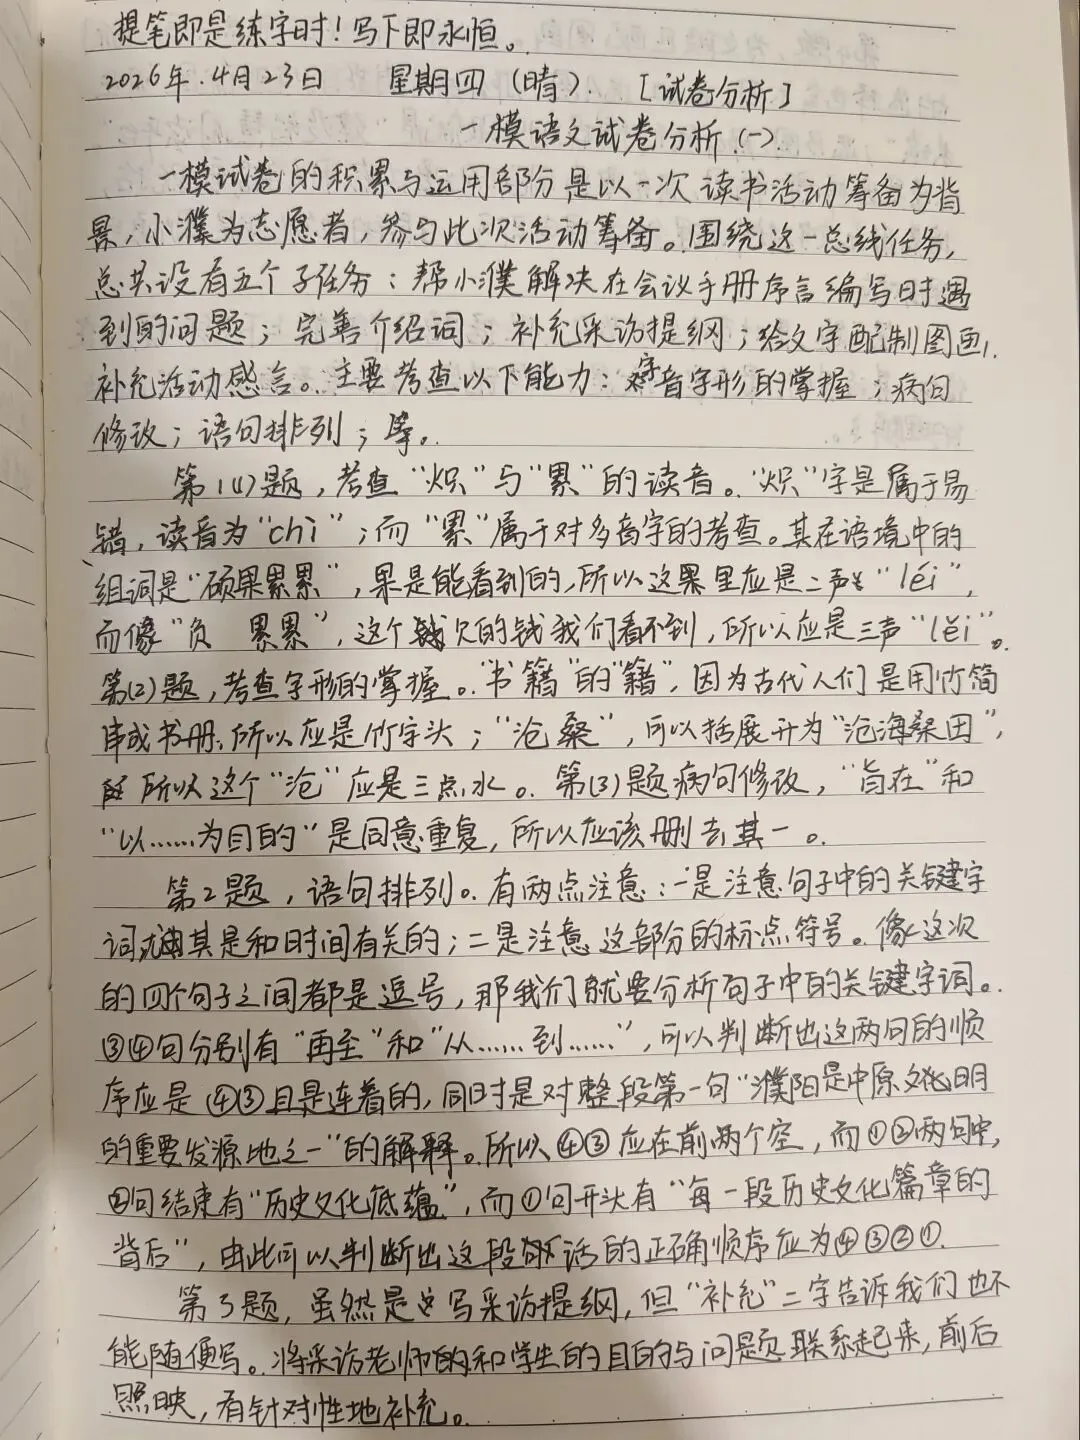 提笔即是练字时！写下即永恒。
2026年.4月23日 星期四（晴）. [试卷分析]
一模语文试卷分析.(一).
一模试卷的积累与运用部分是以一次读书活动筹备为背
景，小濮为志愿者，参与此次活动筹备。围绕这一总线任务，
总共设有五个子任务：帮小濮解决在会议手册序言编写时遇
到的问题；完善介绍词；补充采访提纲；给文字配制图画；
补充活动感言。主要考查以下能力：字音字形的掌握；病句
修改；语句排列；等。
第1(1)题，考查“炽”与“累”的读音。“炽”字是属于易
错，读音为“chì”；而“累”属于对多音字的考查。其在语境中的
组词是“硕果累累”，果是能看到的，所以这里应是二声“léi”，
而像“负 累累”，这个欠的钱我们看不到，所以应是三声“lěi”。
第(2)题，考查字形的掌握。“书籍”的“籍”，因为古代人们是用竹简
串成书册，所以应是竹字头；“沧桑”，可以括展开为“沧海桑田”，
所以这个“沧”应是三点水。第(3)题病句修改，“旨在”和
“以……为目的”是同意重复，所以应该删去其一。
第2题，语句排列。有两点注意：一是注意句子中的关键字
词尤其是和时间有关的；二是注意这部分的标点符号。像这次
的四个句子之间都是逗号，那我们就要分析句子中的关键字词。
③④句分别有“再至”和“从……到……”，可以判断出这两句的顺
序应是④③且是连着的，同时是对整段第一句“濮阳是中原文化明
的重要发源地之一”的解释。所以④③应在前两个空，而①②两句中，
②句结束有“历史文化底蕴”，而①句开头有“每一段历史文化篇章的
背后”，由此可以判断出这段话的正确顺序应为④③②①.
第3题，虽然是写采访提纲，但“补充”二字告诉我们也不
能随便写。将采访老师的和学生的目的与问题联系起来，前后
照映，有针对性地补充。